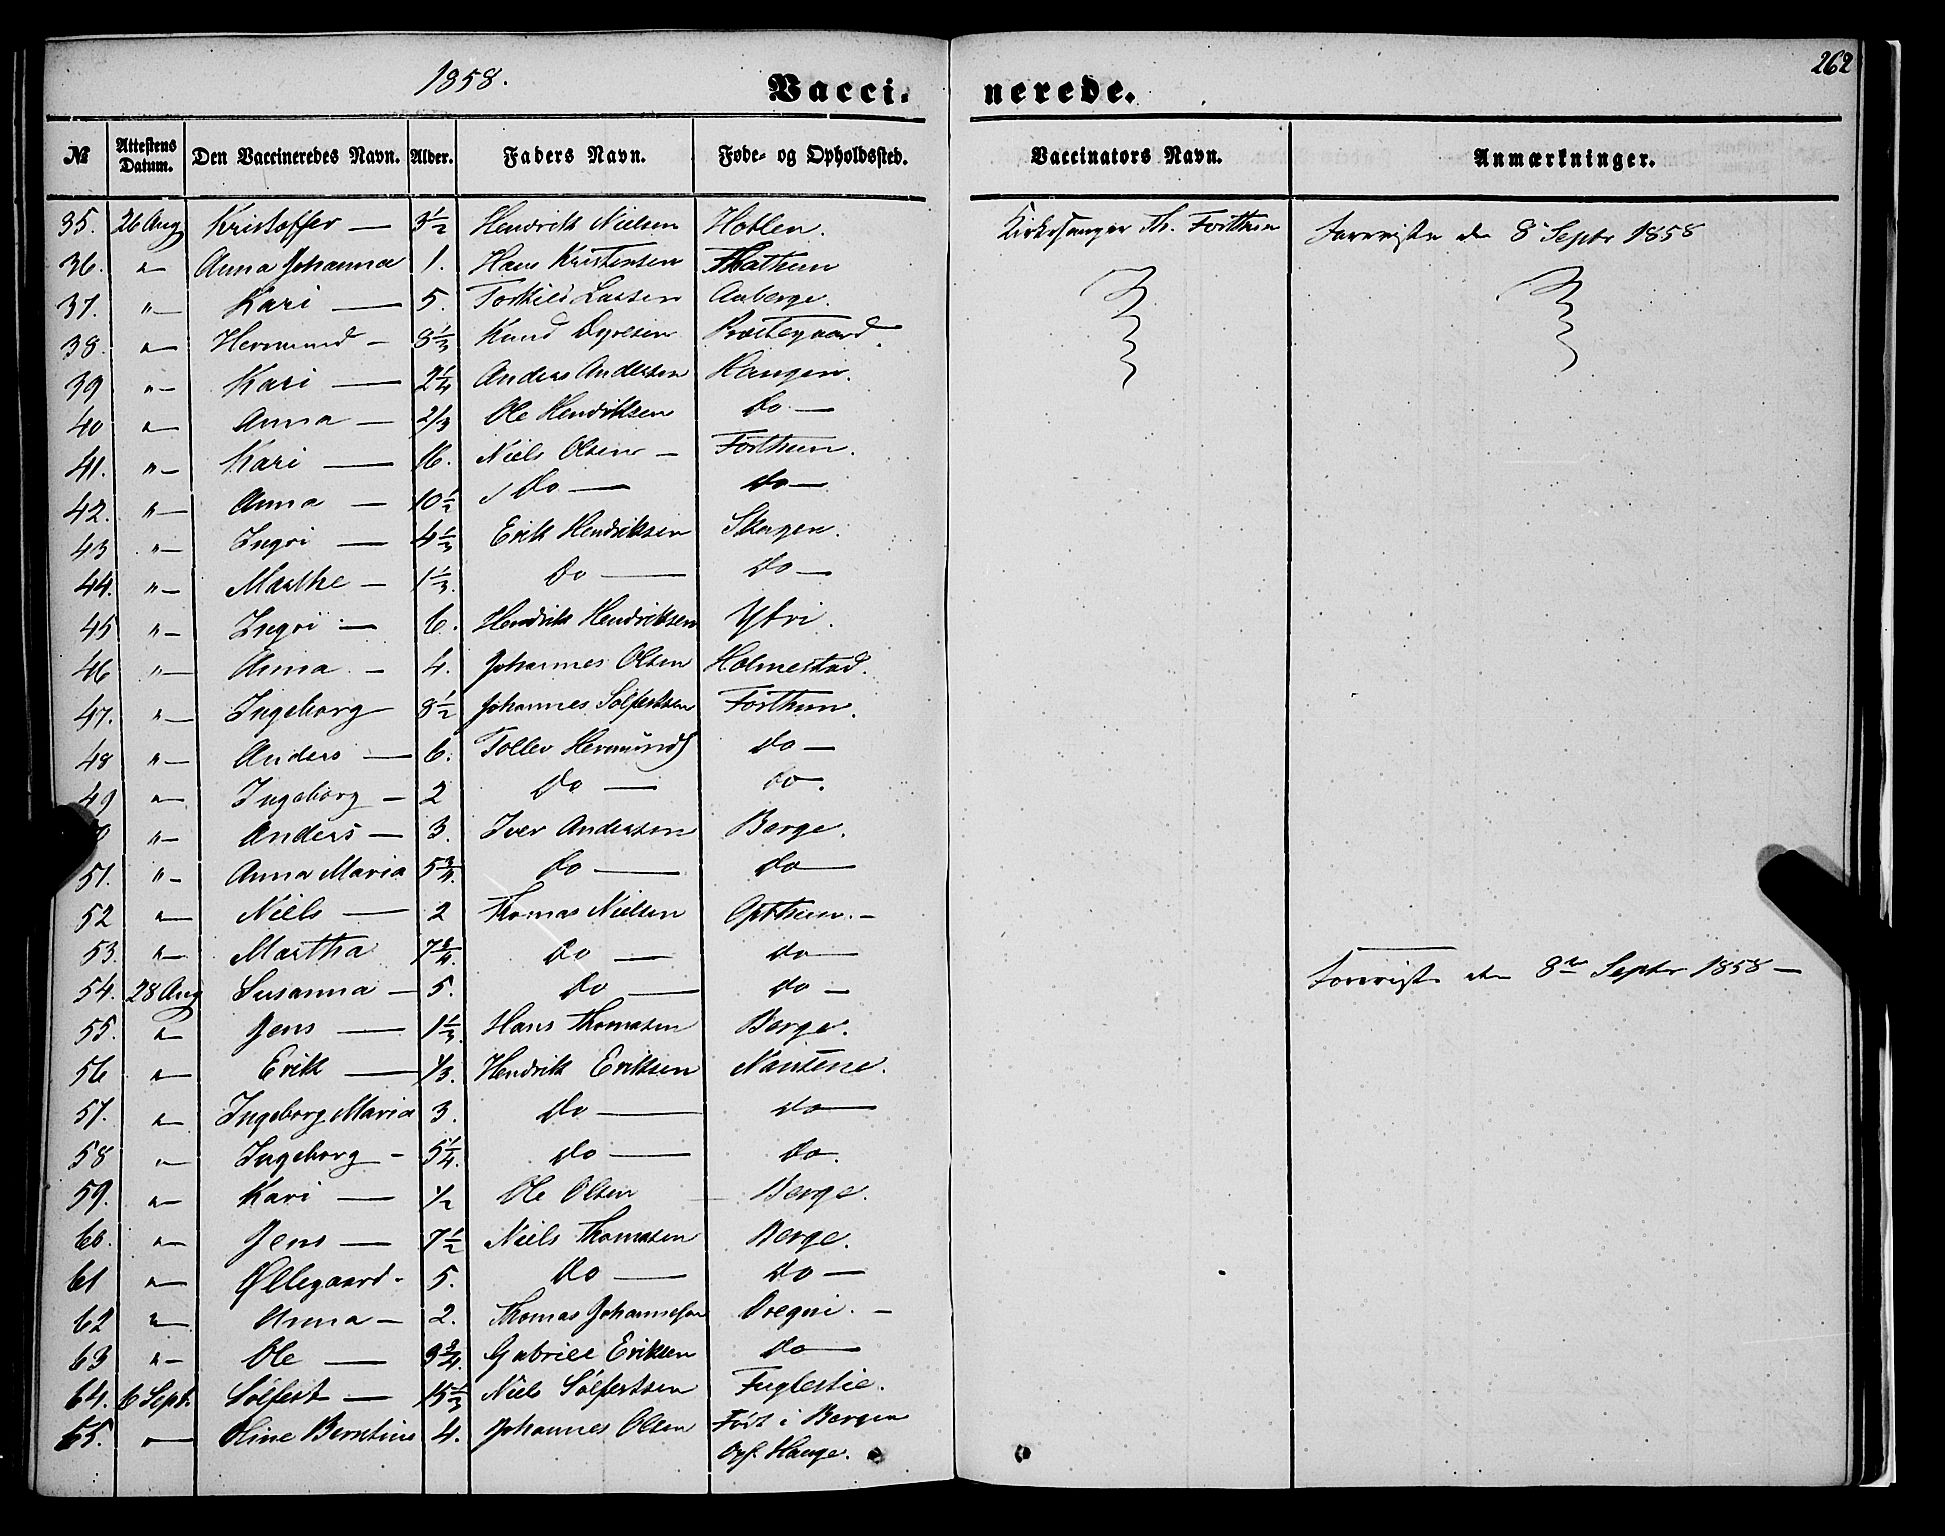 1858.
Vacci-
nerede.
262
№ Attestens Datum. Den Vaccineredes Navn. Alder. Faders Navn. Føde- og Opholdssted. Vaccinators Navn. Anmærkninger.
35. 26 Aug Kristoffer — 3½ Hendrik Nielsen Kirkesanger Th. Förthun 8 Septr 1858
36. "— Anna Johanna 1. Hans Kristensen
37. "— Kari — 5. Torkild Lassen Aaberge.
38. "— Hermund — 8⅓ Knud Præstegaard.
39 "— Kari — 2¼ Anders Andersen Haugen.
40 "— Anna — 2/3 Ole Hendriksen Do —
41. "— Kari — 16. Niels Olsen — Förthun.
42. "— Anna — 10½ Do — do —
43 "— Ingri — 4⅓ Erik Hendriksen Skagen.
44. "— Marthe — 1⅓. Do — do —
45 "— Ingri — 6. Hendrik Hendriksen Ytri.
46 "— Anna — 4. Johannes Olsen Holmestad.
47. "— Ingeborg 8½ Johannes Sölfestsen Förthun.
48 "— Anders — 6. Tollev Hermunds do —
49 "— Ingeborg — 2 Do — do.
"— Anders — 3. Iver Andersen Berge.
51. "— Anna Maria 5¾. do — do —
52 "— Niels — 2 Thomas Nielsen Opthun. —
53. "— Martha 7¾. Do — do —
54. 28 Aug Susanna — 5. Do — do — 8de Septr 1858 —
55. "— Jens — 1⅓. Hans Thomasen Berge.
56 "— Erik — ⅓. Hendrik Eriksen
57. "— Ingeborg Maria 3. Do — do —
58 "— Ingeborg — 5¼. do — do.
59. "— Kari — ½ Ole Olsen Berge.
60. "— Jens — 7½ Niels Thomasen Berge.
61 "— Øllegaard — 5. Do — do —
62 "— Anna — 2. Thomas Johannesen Dregni. —
63 "— Ole — 9¾. Gabriel Eriksen Do —
64. 6 Sept. Sölfest — 15⅓ Niels Sölfestsen Fuglestie.
65. "— Oline Berntine 4. Johannes Olsen Födt i Bergen
Oph. Hauge.